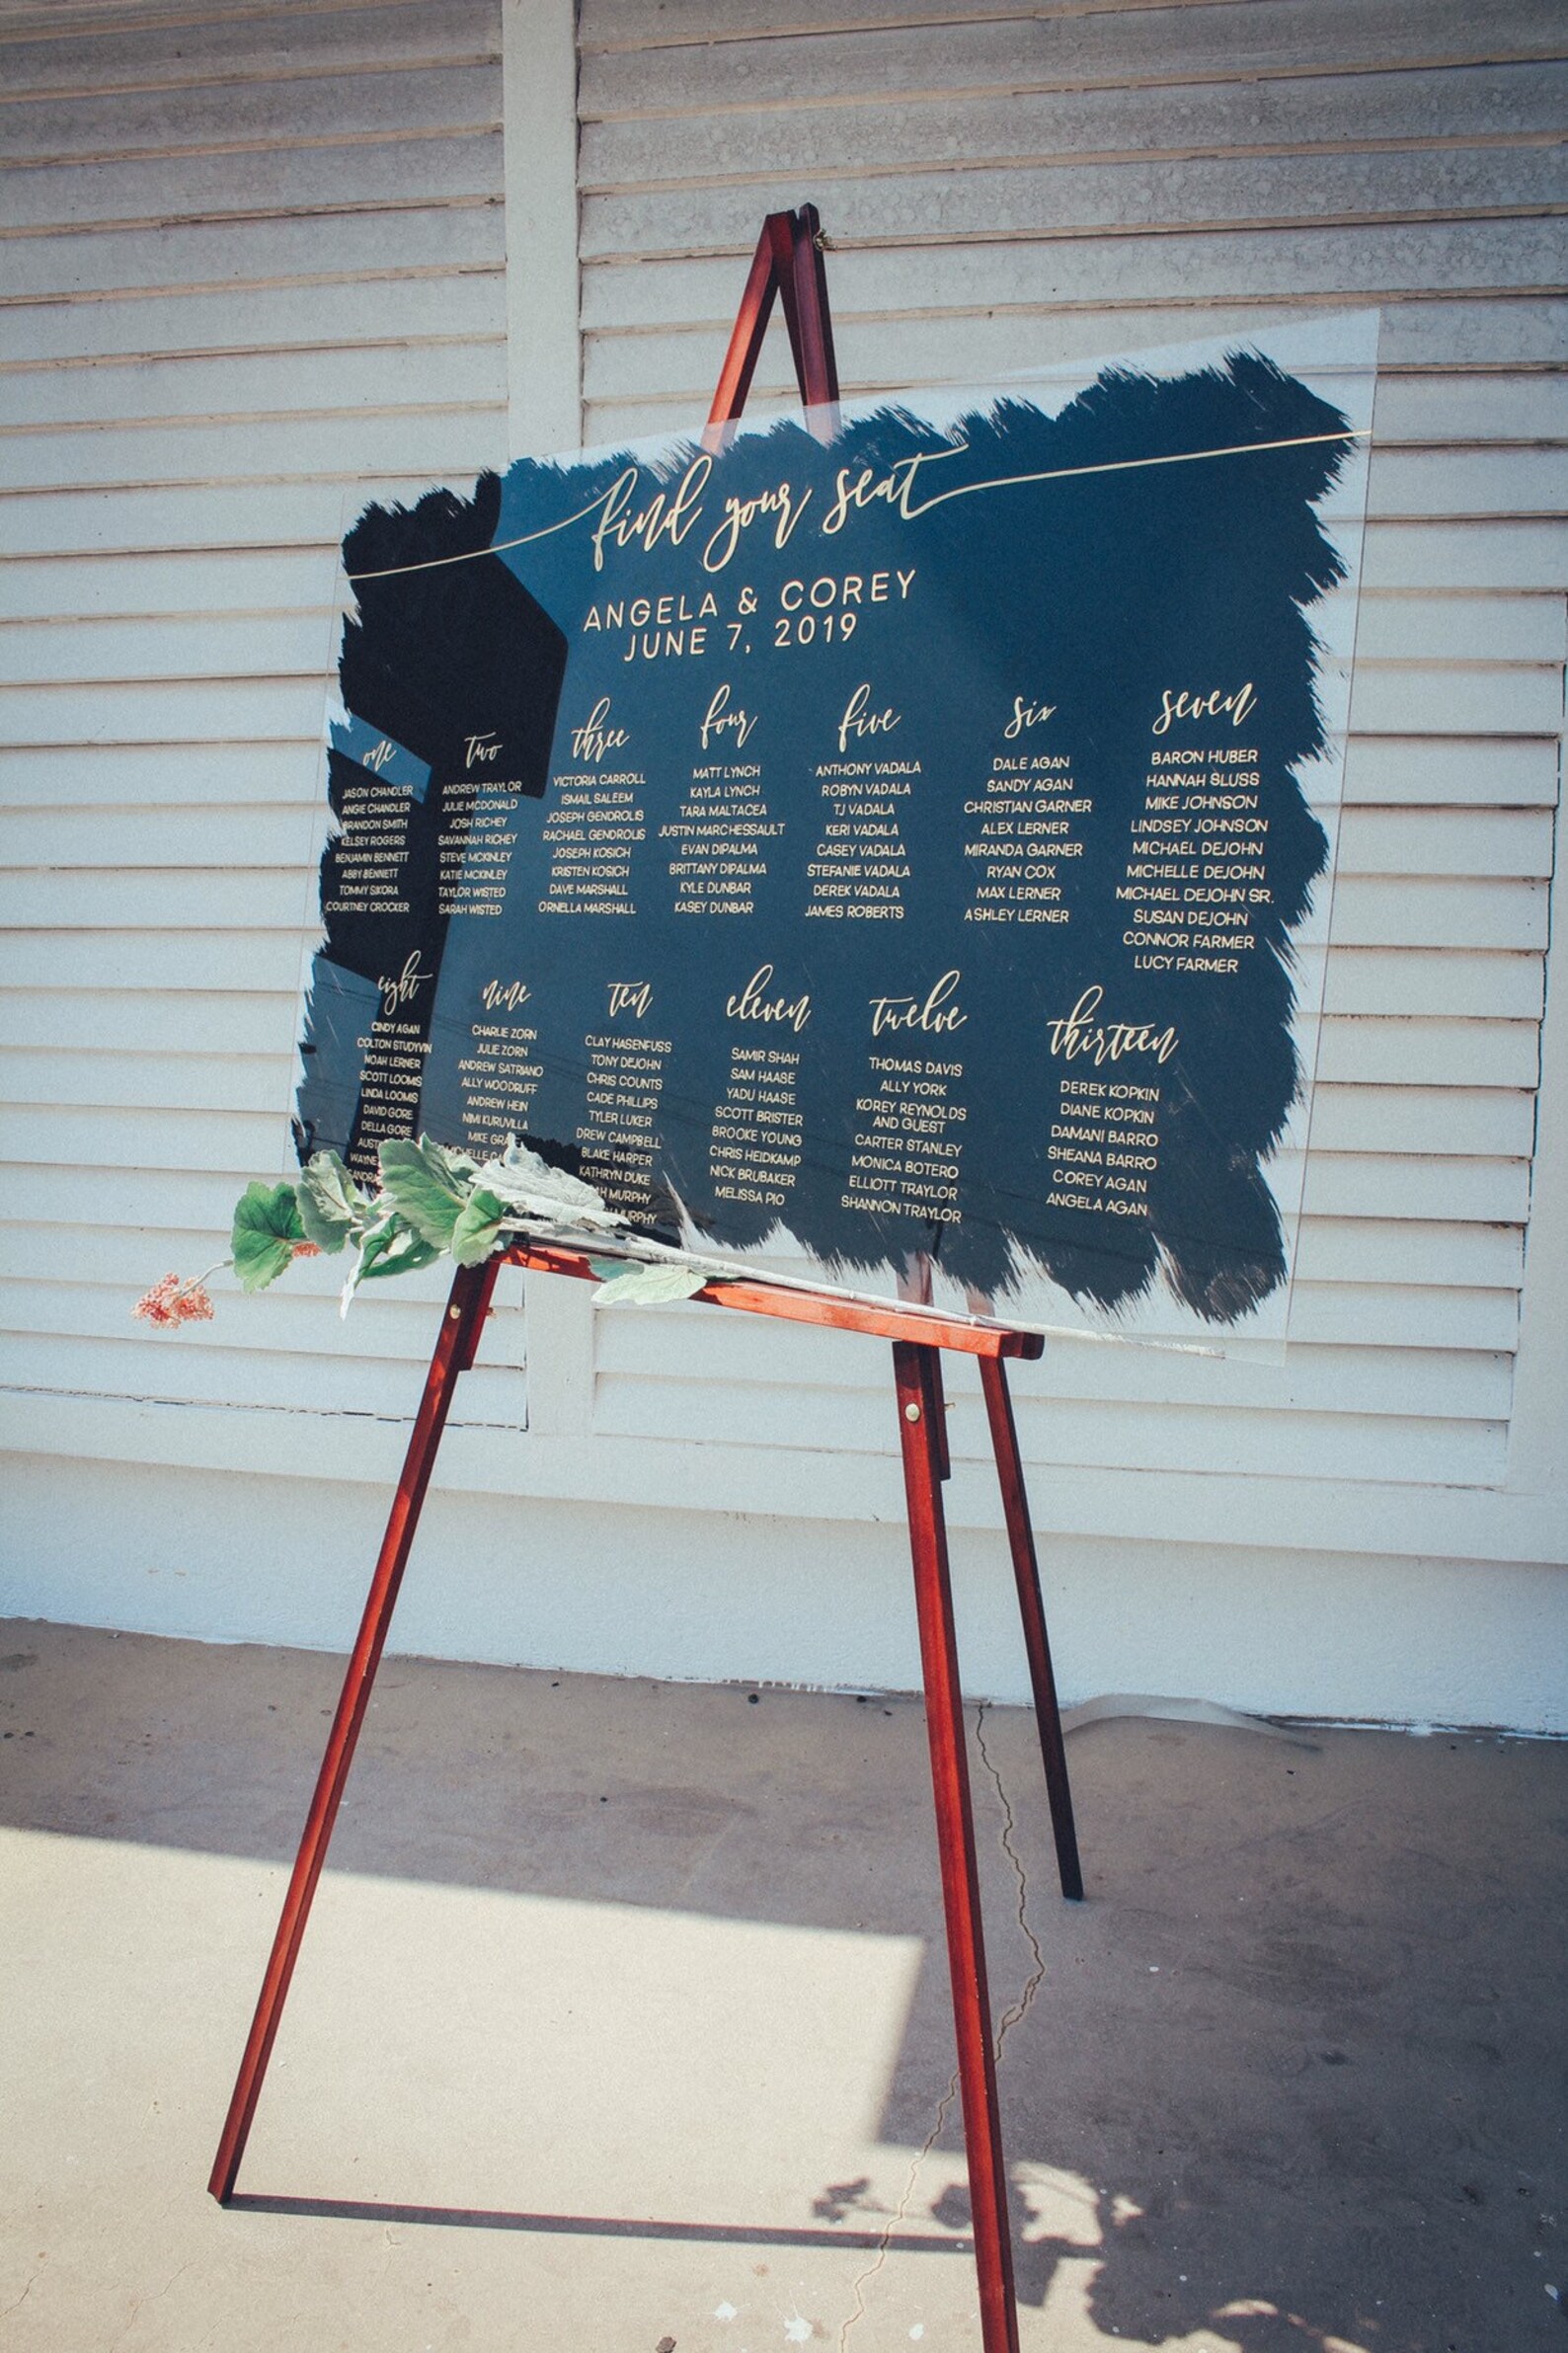 find your seat
ANGELA & COREY
JUNE 7, 2019
one
JASON CHANDLER
ANGIE CHANDLER
BRANDON SMITH
KELSEY ROGERS
BENJAMIN BENNETT
ABBY BENNETT
TOMMY SIKORA
COURTNEY CROCKER
two
ANDREW TRAYLOR
JULIE MCDONALD
JOSH RICHEY
SAVANNAH RICHEY
STEVE MCKINLEY
KATIE MCKINLEY
TAYLOR WISTED
SARAH WISTED
three
VICTORIA CARROLL
ISMAIL SALEEM
JOSEPH GENDROLIS
RACHAEL GENDROLIS
JOSEPH KOSICH
KRISTEN KOSICH
DAVE MARSHALL
ORNELLA MARSHALL
four
MATT LYNCH
KAYLA LYNCH
TARA MALTACEA
JUSTIN MARCHESSAULT
EVAN DIPALMA
BRITTANY DIPALMA
KYLE DUNBAR
KASEY DUNBAR
five
ANTHONY VADALA
ROBYN VADALA
TJ VADALA
KERI VADALA
CASEY VADALA
STEFANIE VADALA
DEREK VADALA
JAMES ROBERTS
six
DALE AGAN
SANDY AGAN
CHRISTIAN GARNER
ALEX LERNER
MIRANDA GARNER
RYAN COX
MAX LERNER
ASHLEY LERNER
seven
BARON HUBER
HANNAH SLUSS
MIKE JOHNSON
LINDSEY JOHNSON
MICHAEL DEJOHN
MICHELLE DEJOHN
MICHAEL DEJOHN SR.
SUSAN DEJOHN
CONNOR FARMER
LUCY FARMER
eight
CINDY AGAN
COLTON STUDYVIN
NOAH LERNER
SCOTT LOOMIS
LINDA LOOMIS
DAVID GORE
DELLA GORE
WAYNE
nine
CHARLIE ZORN
JULIE ZORN
ANDREW SATRIANO
ALLY WOODRUFF
ANDREW HEIN
NIMI KURUVILLA
MIKE
ten
CLAY HASENFUSS
TONY DEJOHN
CHRIS COUNTS
CADE PHILLIPS
TYLER LUKER
DREW CAMPBELL
BLAKE HARPER
KATHRYN DUKE
MURPHY
MURPHY
eleven
SAMIR SHAH
SAM HAASE
YADU HAASE
SCOTT BRISTER
BROOKE YOUNG
CHRIS HEIDKAMP
NICK BRUBAKER
MELISSA PIO
twelve
THOMAS DAVIS
ALLY YORK
KOREY REYNOLDS
AND GUEST
CARTER STANLEY
MONICA BOTERO
ELLIOTT TRAYLOR
SHANNON TRAYLOR
thirteen
DEREK KOPKIN
DIANE KOPKIN
DAMANI BARRO
SHEANA BARRO
COREY AGAN
ANGELA AGAN